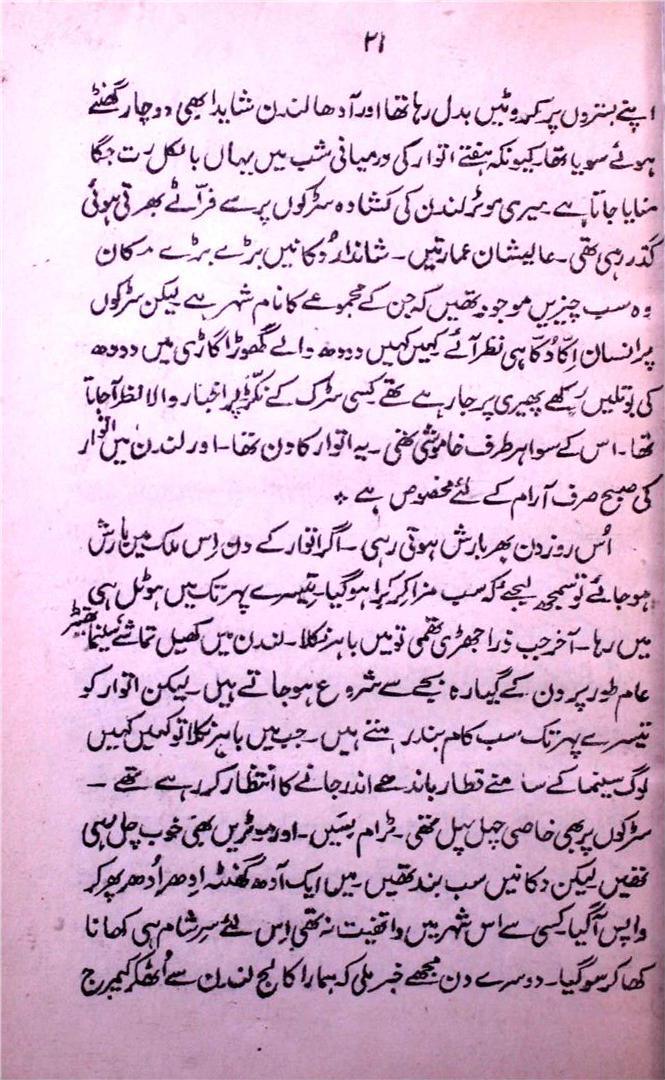 ۲۱
اپنے بستروں پر کروٹیں بدل رہا تھا اور آدھا لندن شاید ابھی دو چار گھنٹے
ہوئے سویا تھا۔ کیونکہ ہفتے اتوار کی درمیانی شب میں یہاں بالکل رت جگا
منایا جاتا ہے۔ میری موٹر لندن کی کشادہ سڑکوں پر سے فراٹے بھرتی ہوئی
گذر رہی تھی۔ عالیشان عمارتیں۔ شاندار دُکانیں بڑے بڑے مکان
وہ سب چیزیں موجود تھیں کہ جن کے مجموعے کا نام شہر ہے لیکن سڑکوں
پر انسان اِکّا دُکّا ہی نظر آئے کہیں کہیں دودھ والے گھوڑا گاڑی میں دودھ
کی بوتلیں رکھے پھیری پر جا رہے تھے کسی سڑک کے نکڑ پر اخبار والا نظر آجاتا
تھا۔ اس کے سوا ہر طرف خاموشی تھی۔ یہ اتوار کا دن تھا۔ اور لندن میں اتوار
کی صبح صرف آرام کے لئے مخصوص ہے ٭
اُس روز دن بھر بارش ہوتی رہی۔ اگر اتوار کے دن اِس ملک میں بارش
ہوجائے تو سمجھ لیجئے کہ سب مزا کرکرا ہو گیا۔ تیسرے پہر تک میں ہوٹل ہی
میں رہا۔ آخر جب ذرا جھڑی تھمی تو میں باہر نکلا۔ لندن میں کھیل تماشے سینما تھیٹر
عام طور پر دن کے گیارہ بجے سے شروع ہوجاتے ہیں۔ لیکن اتوار کو
تیسرے پہر تک سب کام بند رہتے ہیں۔ جب میں باہر نکلا تو کہیں کہیں
لوگ سینما کے سامنے قطار باندھے اندر جانے کا انتظار کر رہے تھے ۔
سڑکوں پر بھی خاصی چہل پہل تھی۔ ٹرام بسیں۔ اور موٹریں بھی خوب چل رہی
تھیں لیکن دکانیں سب بند تھیں۔ میں ایک آدھ گھنٹہ اِدھر اُدھر پھر کر
واپس آگیا کسی سے اس شہر میں واقفیت نہ تھی اِس لئے سرِ شام ہی کھانا
کھا کر سو گیا۔ دوسرے دن مجھے خبر ملی کہ ہمارا کالج لندن سے اُٹھ کر کیمبرج